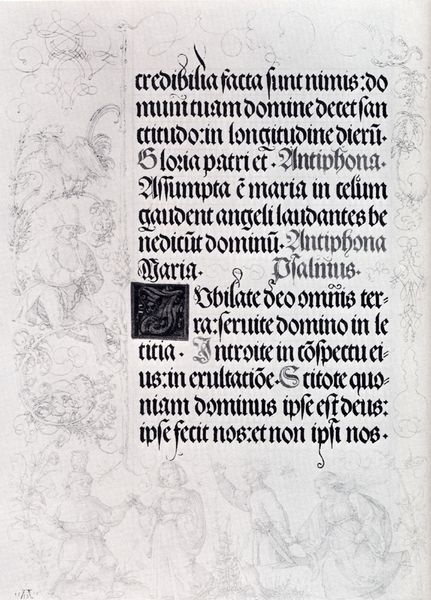 credibilia facta sunt nimis: do
mum̄ tuam domine decet san
ctitudo: in longitudine dierū.
Gloria patri et̄. Antiphona.
Assumpta ē maria in celum
gaudent angeli laudantes be
nedicūt dominū. Antiphona
Maria. Psalmus.
JVbilate deo omnis ter-
ra: seruite domino in le
titia. Introite in cōspectu ei-
us: in exultatiōe. Scitote quo-
niam dominus ipse est deus:
ipse fecit nos: et non ipsi nos.